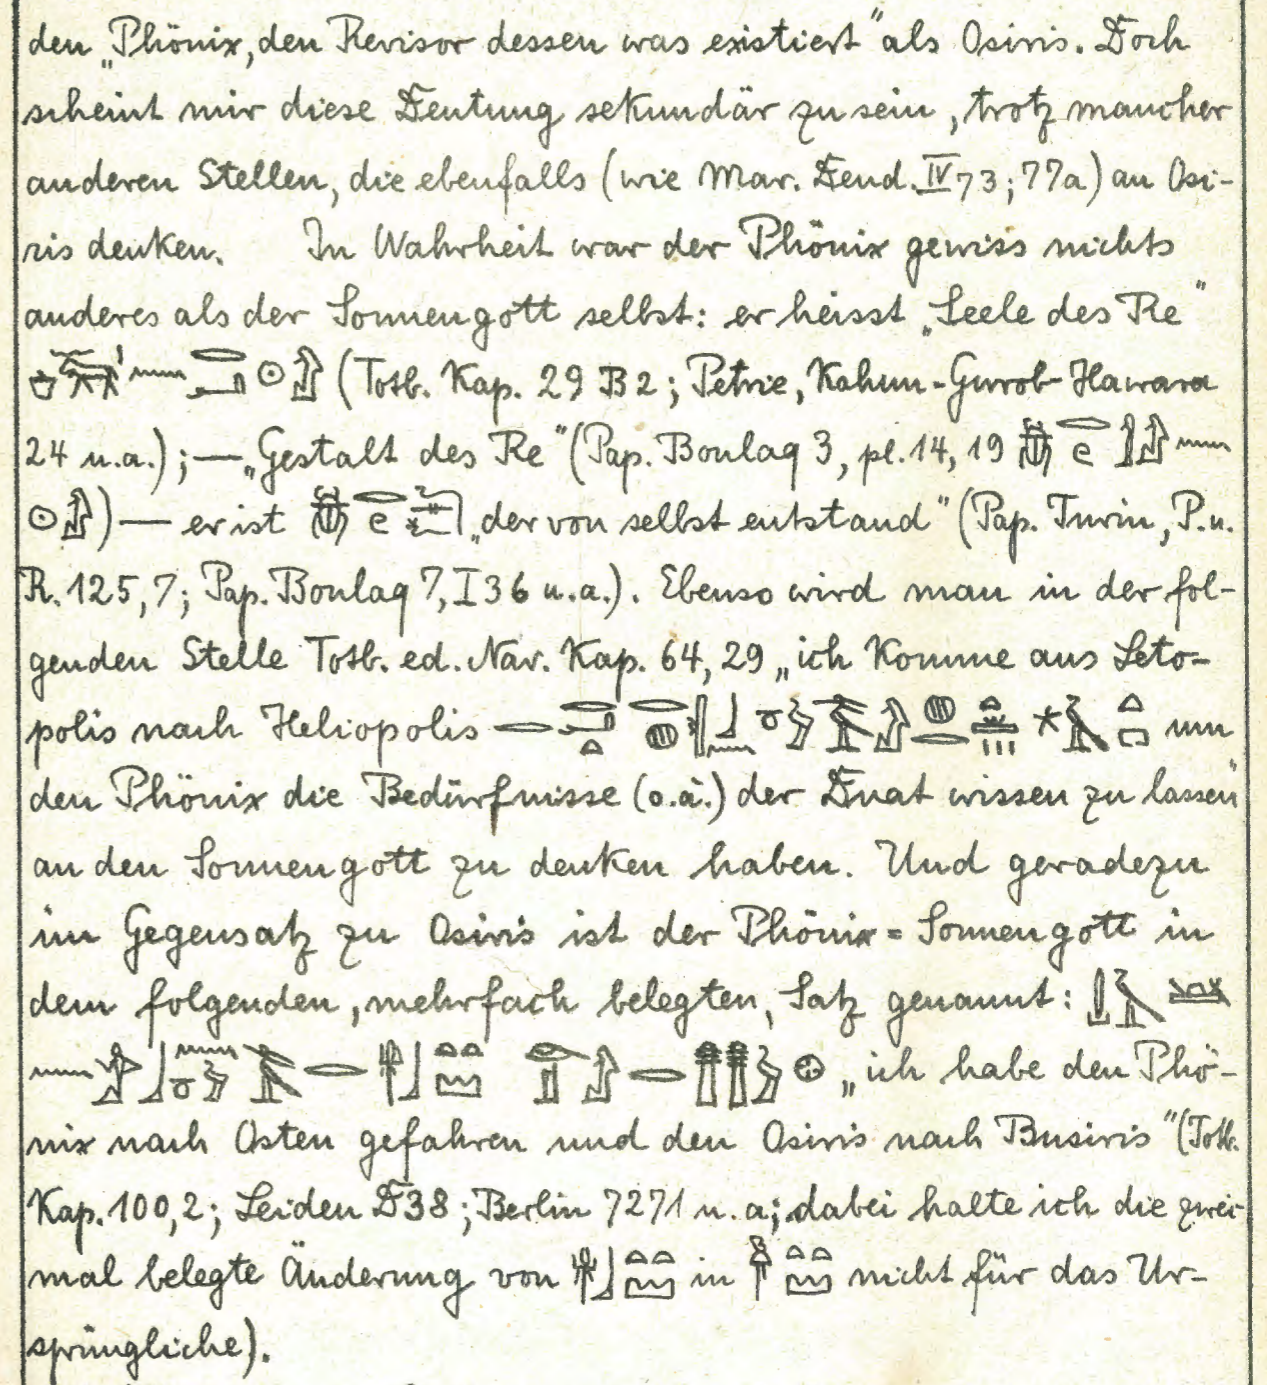 den „Phönix, den Revisor dessen was existiert“ als Osiris. Doch
scheint mir diese Deutung sekundär zu sein, trotz mancher
anderen Stellen, die ebenfalls (wie Mar. Dend. IV 73; 77a) an Osi-
ris denken. In Wahrheit war der Phönix gewiss nichts
anderes als der Sonnengott selbst: er heisst „Seele des Re“
(Totb. Kap. 29 B 2; Petrie, Kahun-Gurob-Hawara
24 u.a.); — „Gestalt des Re“ (Pap. Boulaq 3, pl. 14, 19
) — er ist „der von selbst entstand“ (Pap. Turin, P. u.
R. 125, 7; Pap. Boulaq 7, I 36 u.a.). Ebenso wird man in der fol-
genden Stelle Totb. ed. Nav. Kap. 64, 29 „ich komme aus Leto-
polis nach Heliopolis um
den Phönix die Bedürfnisse (o.ä.) der Duat wissen zu lassen“
an den Sonnengott zu denken haben. Und geradezu
im Gegensatz zu Osiris ist der Phönix = Sonnengott in
dem folgenden, mehrfach belegten, Satz genannt:
„ich habe den Phö-
nix nach Osten gefahren und den Osiris nach Busiris“ (Totb.
Kap. 100, 2; Leiden D 38; Berlin 7271 u. a; dabei halte ich die zwei-
mal belegte Änderung von in nicht für das Ur-
sprüngliche).